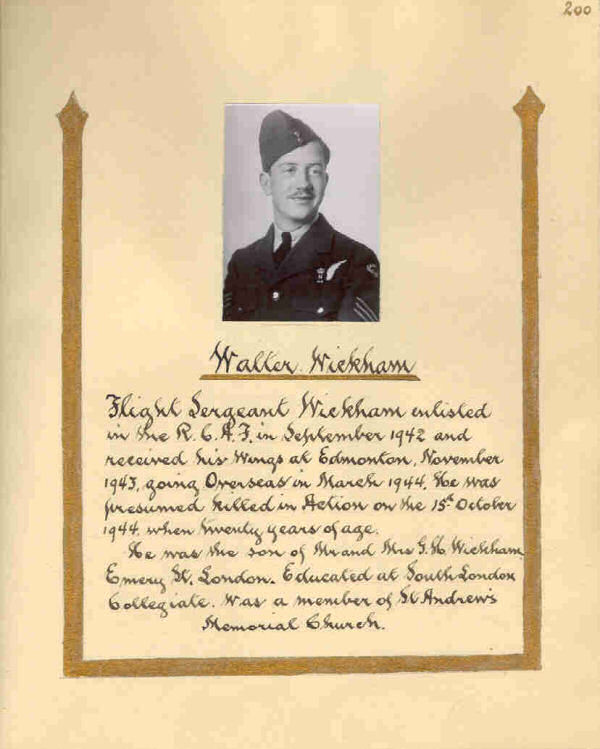 200
Walter Wickham
Flight Sergeant Wickham enlisted
in the R.C.A.F. in September 1942 and
received his Wings at Edmonton, November
1943, going Overseas in March 1944. He was
presumed killed in Action on the 15th October
1944, when twenty years of age.
He was the son of Mr and Mrs G. H. Wickham,
Emery St. London. Educated at South London
Collegiate. Was a member of St Andrew's
Memorial Church.